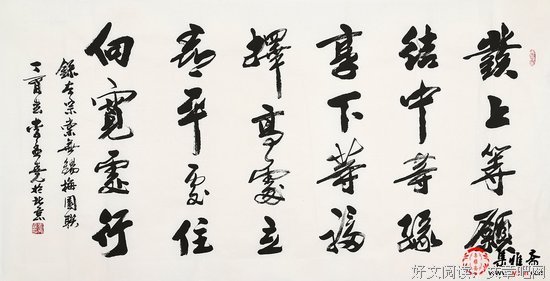 發上等願
結中等緣
享下等福
擇高處立
尋平處住
向寬處行
錄左宗棠無錫梅園聯
丁酉 李 於北京
集雅斋